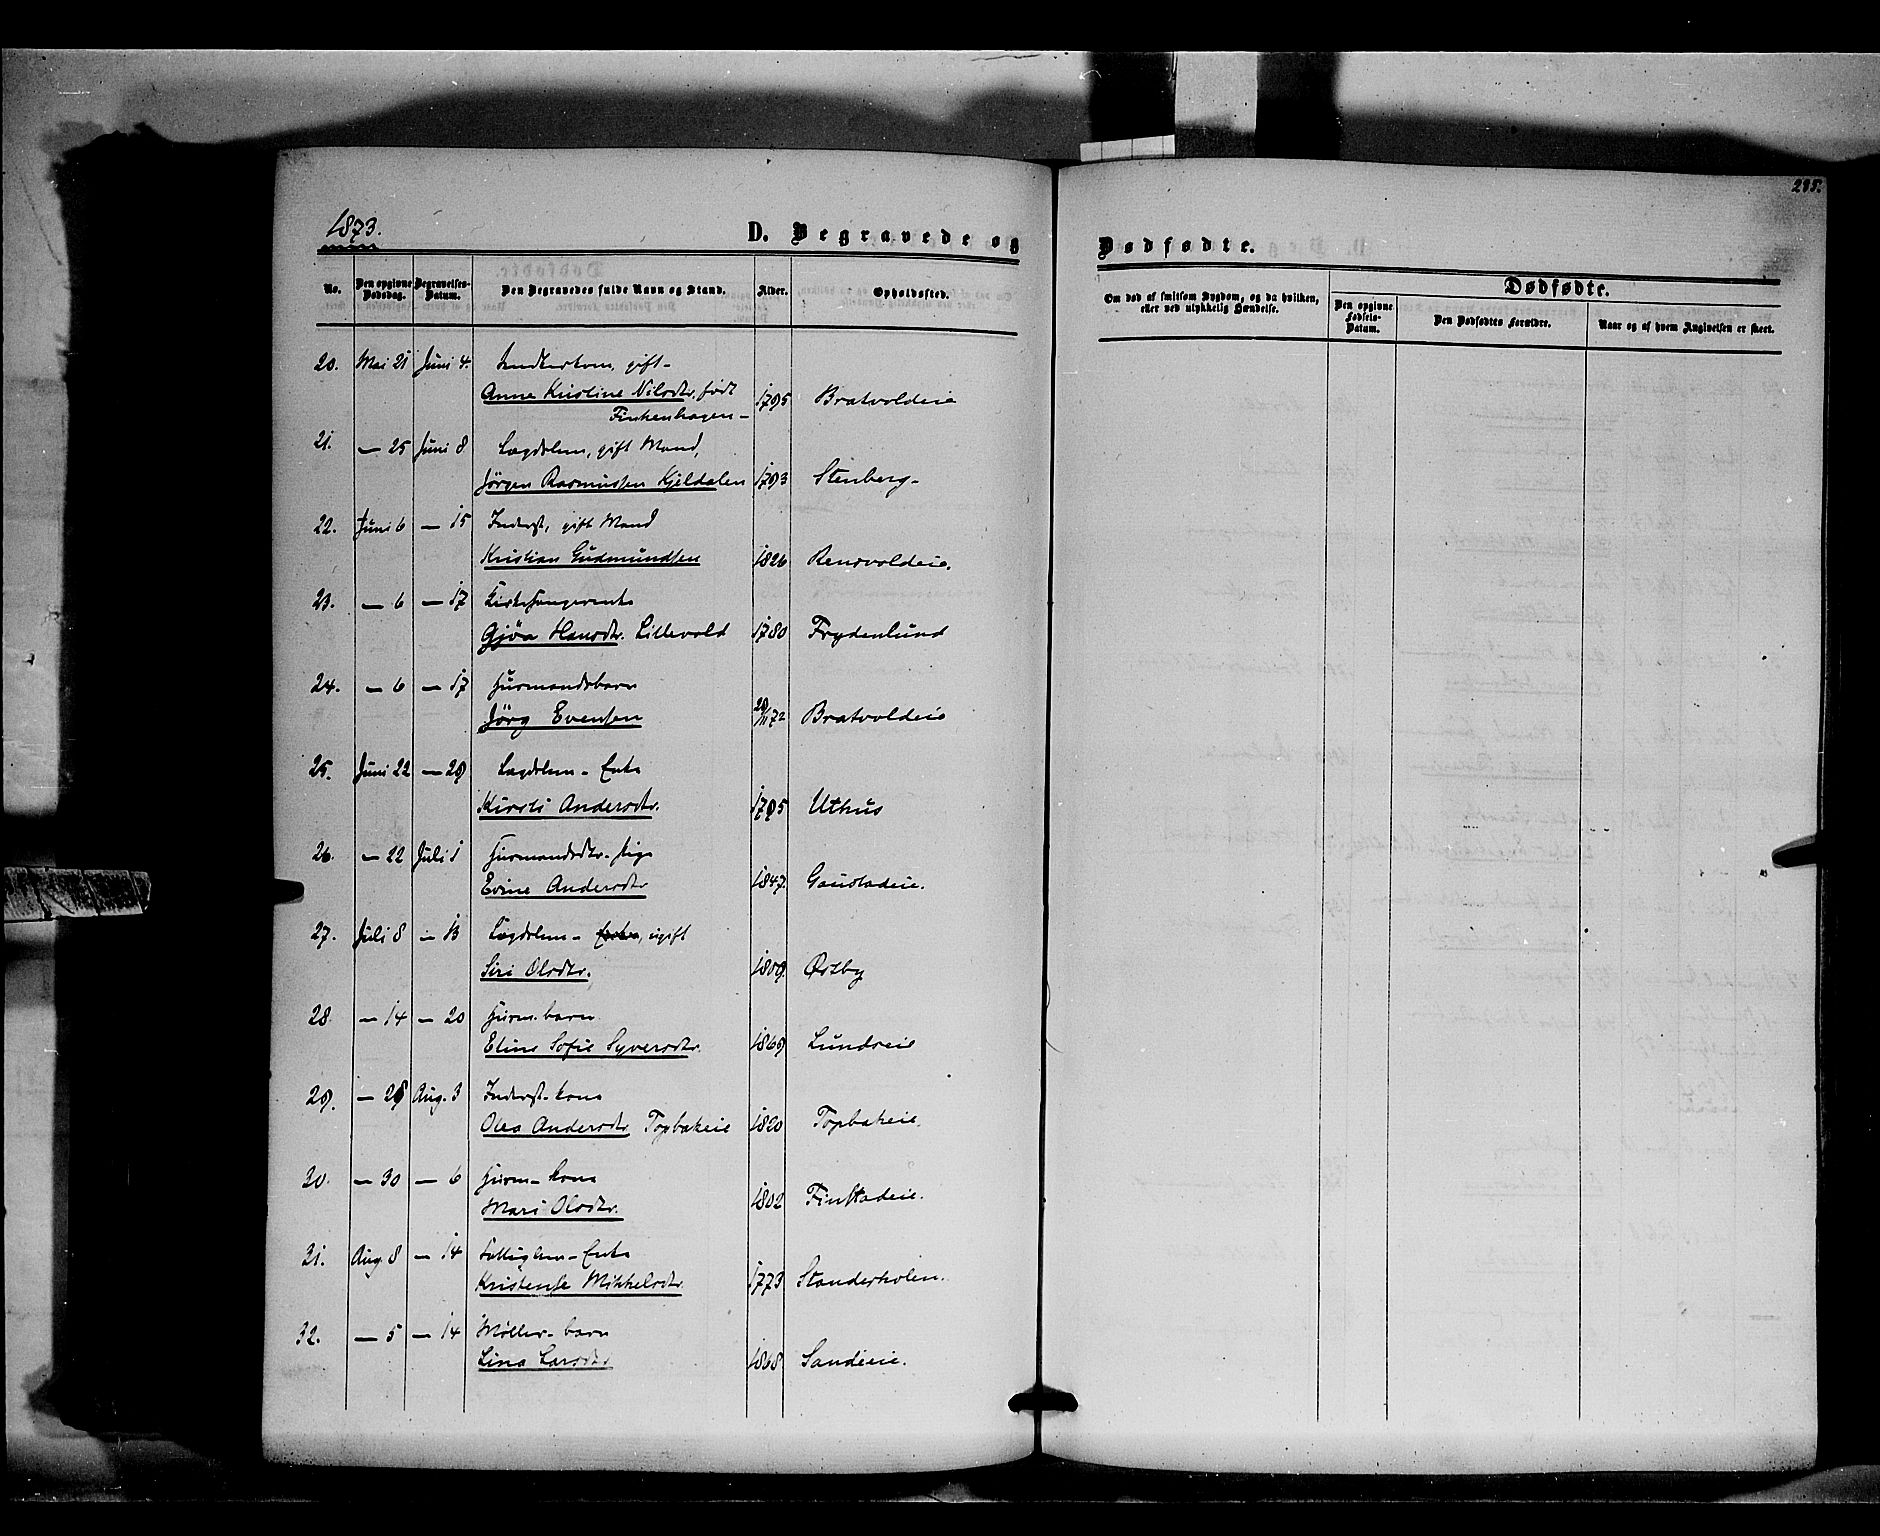 295.
1873.
D. Begravede og Dødfødte.
No. Den opgivne Dødsdag. Begravelses-Datum. Den Begravedes fulde Navn og Stand. Alder. Opholdssted.
Om død af smitsom Sygdom, og da hvilken, eller ved ulykkelig Hændelse.
Dødfødte.
Den opgivne Fødsels-Datum. Den Dødfødtes Forældre. Naar og af hvem Angivelsen er skeet.
20. Mai 21 Juni 4. gift
Anne Kristine Nilsdtr, født 1795 Bratvoldeie
Finkenhagen
21. — 25 Juni 8 Lægdslem, gift Mand,
Jörgen Rasmussen Kjeldalen 1793 Stenberg
22. Juni 6 — 15 Inderst, gift Mand
Kristian Gudmundsen 1826 Rensvoldeie.
23. — 6 — 17 Kirkesangerenke
Gjöa Hansdtr. Lillevold 1780 Frydenlund
24. — 6 — 17 Husmandsbarn
Jörg Evensen 29/11 72 Bratvoldeie
25. Juni 22 — 29 Lægdslem - Enke
Kirsti Andersdtr. 1795 Uthus
26. — 22 Juli 1 Husmandsdtr. Pige
Evine Andersdtr 1847. Gaustadeie.
27. Juli 8 — 13 Lægdslem - Enke, ugift
Siri Olsdtr. 1809. Østby
28. — 14 — 20 Husm. barn
Eline Sofie Syversdtr. 1869 Lundseie
29. — 28 Aug. 3 Inderst-kone
Olea Andersdtr Topbakeie 1820 Topbakeie.
30. — 30 — 6 Husm- kone
Mari Olsdtr. 1802 Finstadeie.
31. Aug. 8 — 14 Fattiglem - Enke
Kristense Mikkelsdtr. 1773 Standerholen.
32. — 5 — 14 Møller- barn
Lina Larsdtr 1868 Sandeeie.